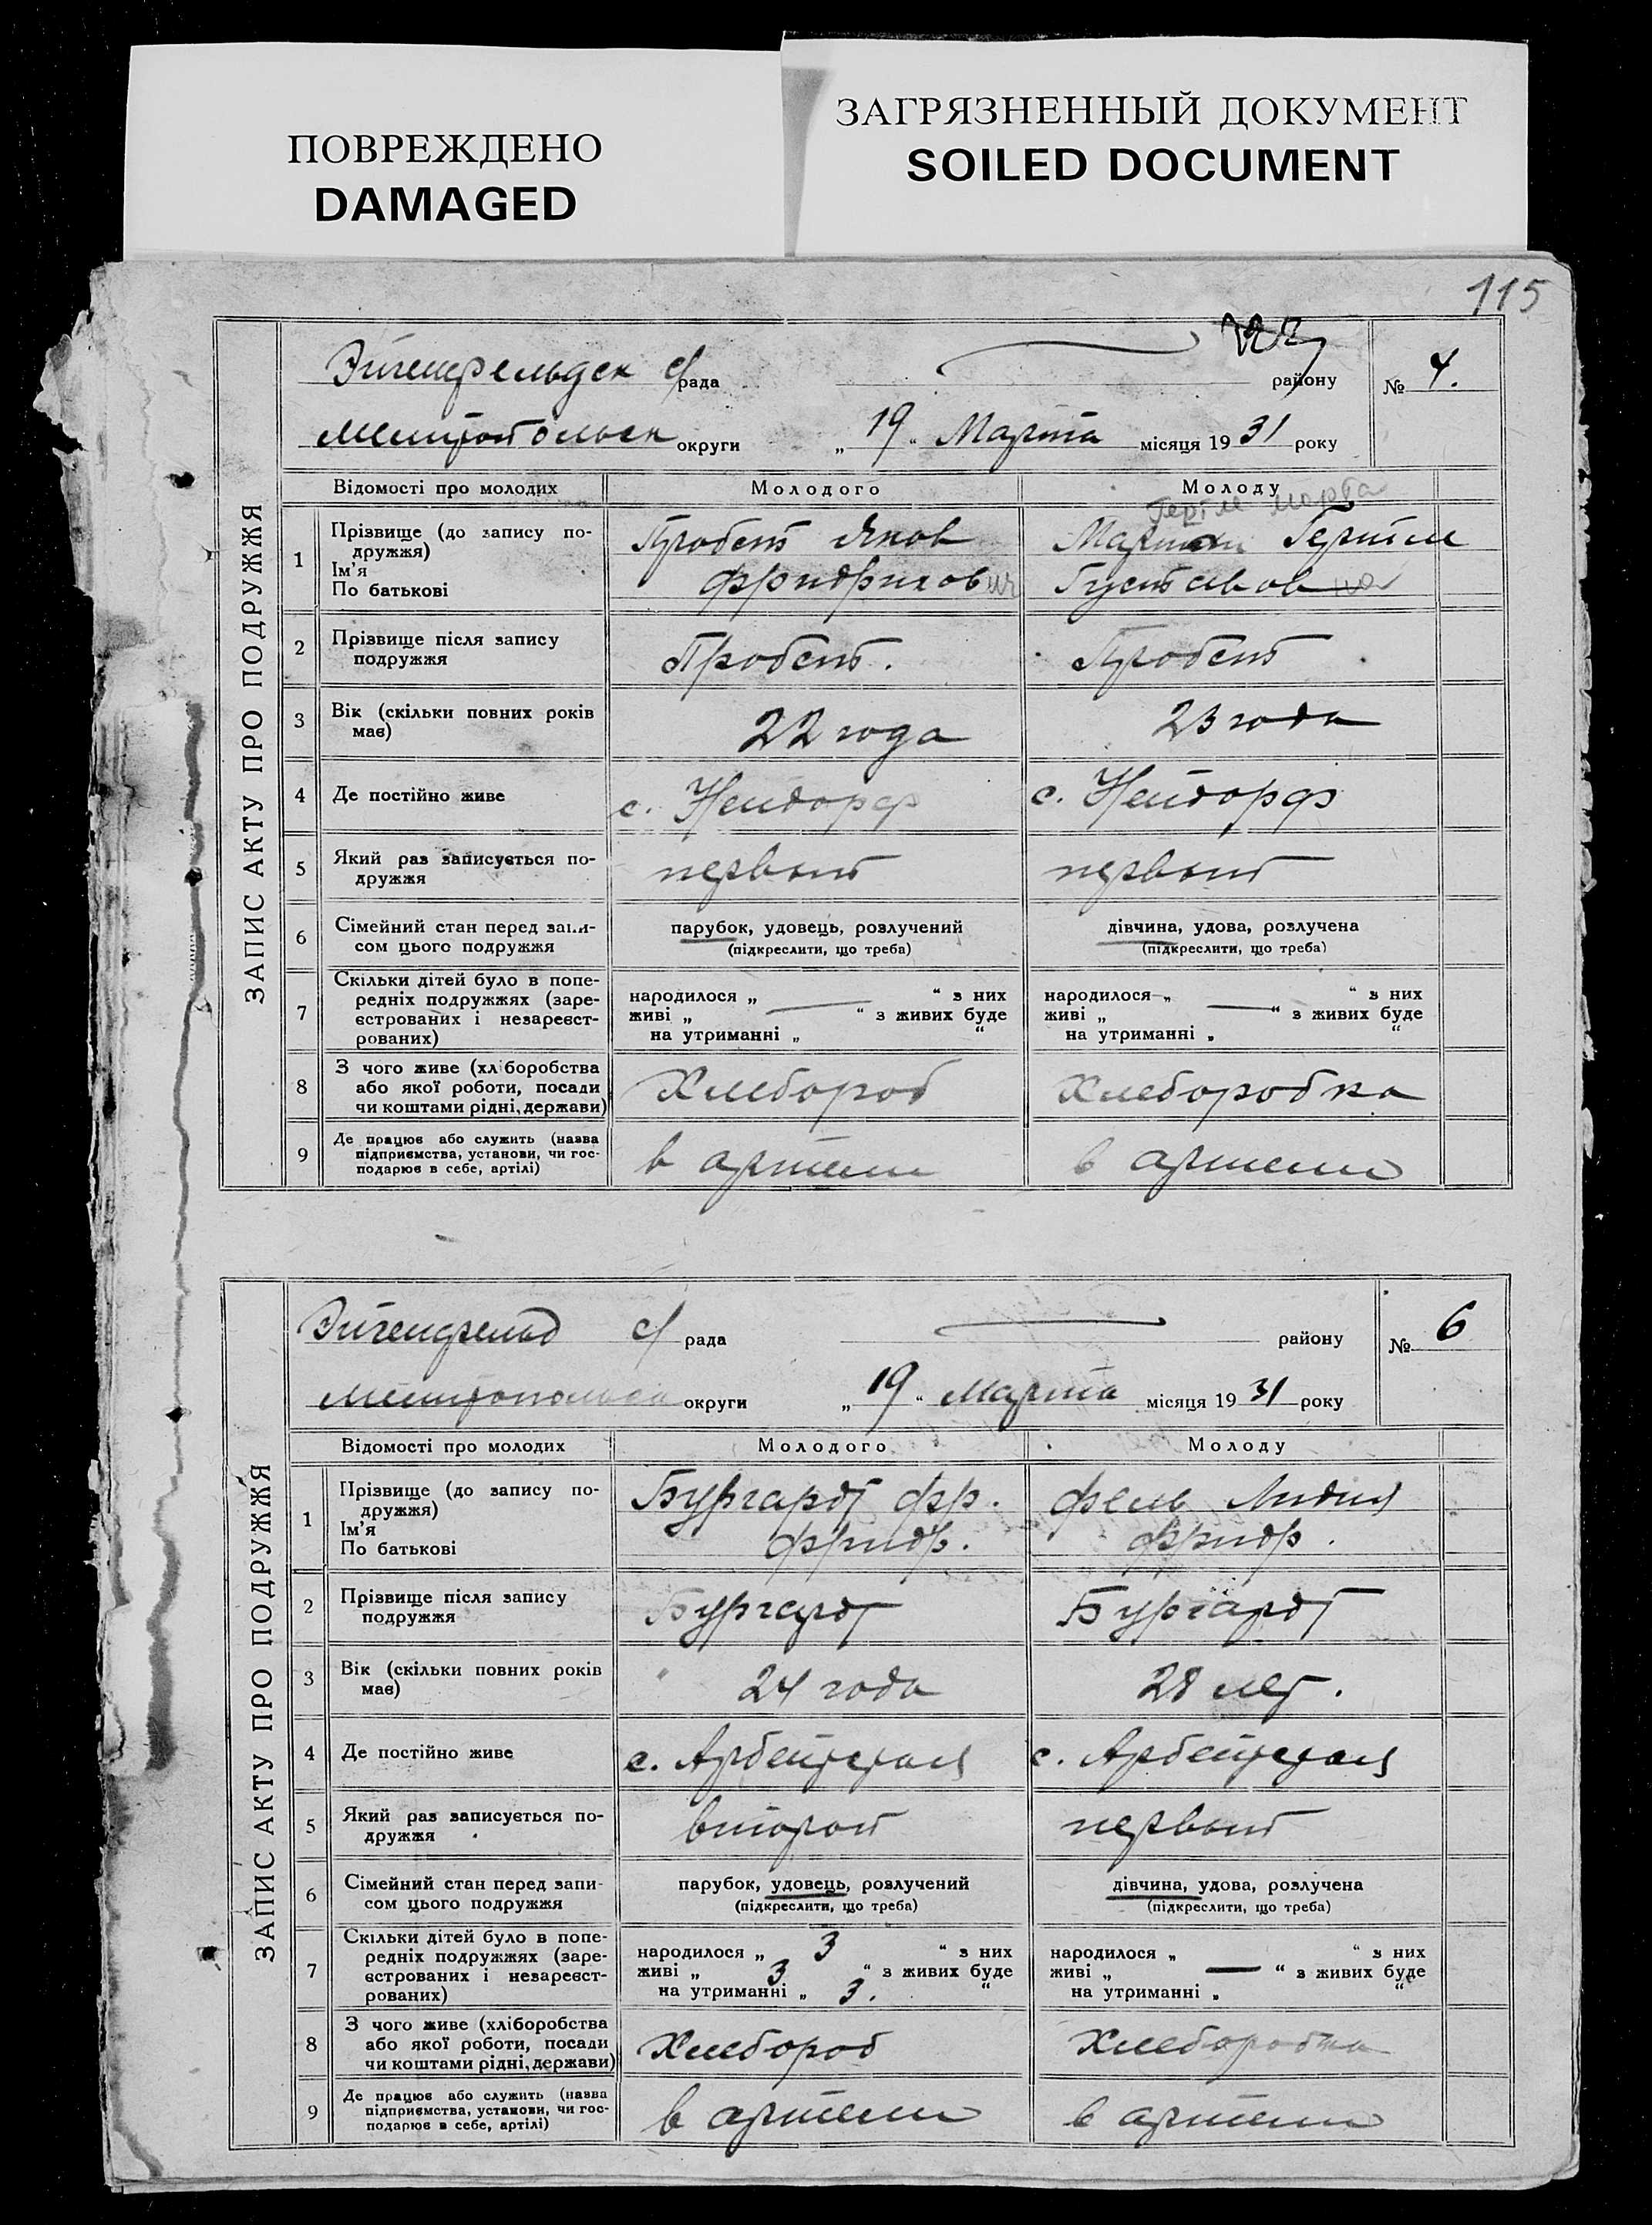 ПОВРЕЖДЕНО
DAMAGED
ЗАГРЯЗНЕННЫЙ ДОКУМЕНТ
SOILED DOCUMENT
115
ЗАПИС АКТУ ПРО ПОДРУЖЖЯ
Эйгенфельдск с/рада району № 4.
округи „19“ Марта місяця 1931 року
Відомості про молодих Молодого Молоду
Гертле Марта
1 Прізвище (до запису по-
дружжя)
Ім'я
По батькові
Пробст Яков
Фридрихович
Гертле
Густавовна
2 Прізвище після запису
подружжя
Пробст. Пробст
3 Вік (скільки повних років
має)
22 года 23 года
4 Де постійно живе с. Нейдорф с. Нейдорф
5 Який раз записується по-
дружжя
первый первый
6 Сімейний стан перед запи-
сом цього подружжя
парубок, удовець, розлучений
(підкреслити, що треба)
дівчина, удова, розлучена
(підкреслити, що треба)
7 Скільки дітей було в попе-
редніх подружжях (заре-
єстрованих і незареєст-
рованих)
народилося „ — “ з них
живі „ “ з живих буде
на утриманні „ “
народилося „ — “ з них
живі „ “ з живих буде
на утриманні „ “
8 З чого живе (хліборобства
або якої роботи, посади
чи коштами рідні, держави)
Хлебороб Хлеборобка
9 Де працює або служить (назва
підприємства, установи, чи гос-
подарює в себе, артілі)
в артели в артели
ЗАПИС АКТУ ПРО ПОДРУЖЖЯ
Эйгенфельд с/рада району № 6
округи „19“ Марта місяця 1931 року
Відомості про молодих Молодого Молоду
1 Прізвище (до запису по-
дружжя)
Ім'я
По батькові
Бургардт Фр.
Фридр.
Фель Лидия
Фридр.
2 Прізвище після запису
подружжя
Бургардт Бургардт
3 Вік (скільки повних років
має)
24 года 28 лет.
4 Де постійно живе с. Арбейтсталь с. Арбейтсталь
5 Який раз записується по-
дружжя
второй первый
6 Сімейний стан перед запи-
сом цього подружжя
парубок, удовець, розлучений
(підкреслити, що треба)
дівчина, удова, розлучена
(підкреслити, що треба)
7 Скільки дітей було в попе-
редніх подружжях (заре-
єстрованих і незареєст-
рованих)
народилося „ 3 “ з них
живі „ 3 “ з живих буде
на утриманні „ 3. “
народилося „ “ з них
живі „ — “ з живих буде
на утриманні „ “
8 З чого живе (хліборобства
або якої роботи, посади
чи коштами рідні, держави)
Хлебороб Хлеборобка
9 Де працює або служить (назва
підприємства, установи, чи гос-
подарює в себе, артілі)
в артели в артели